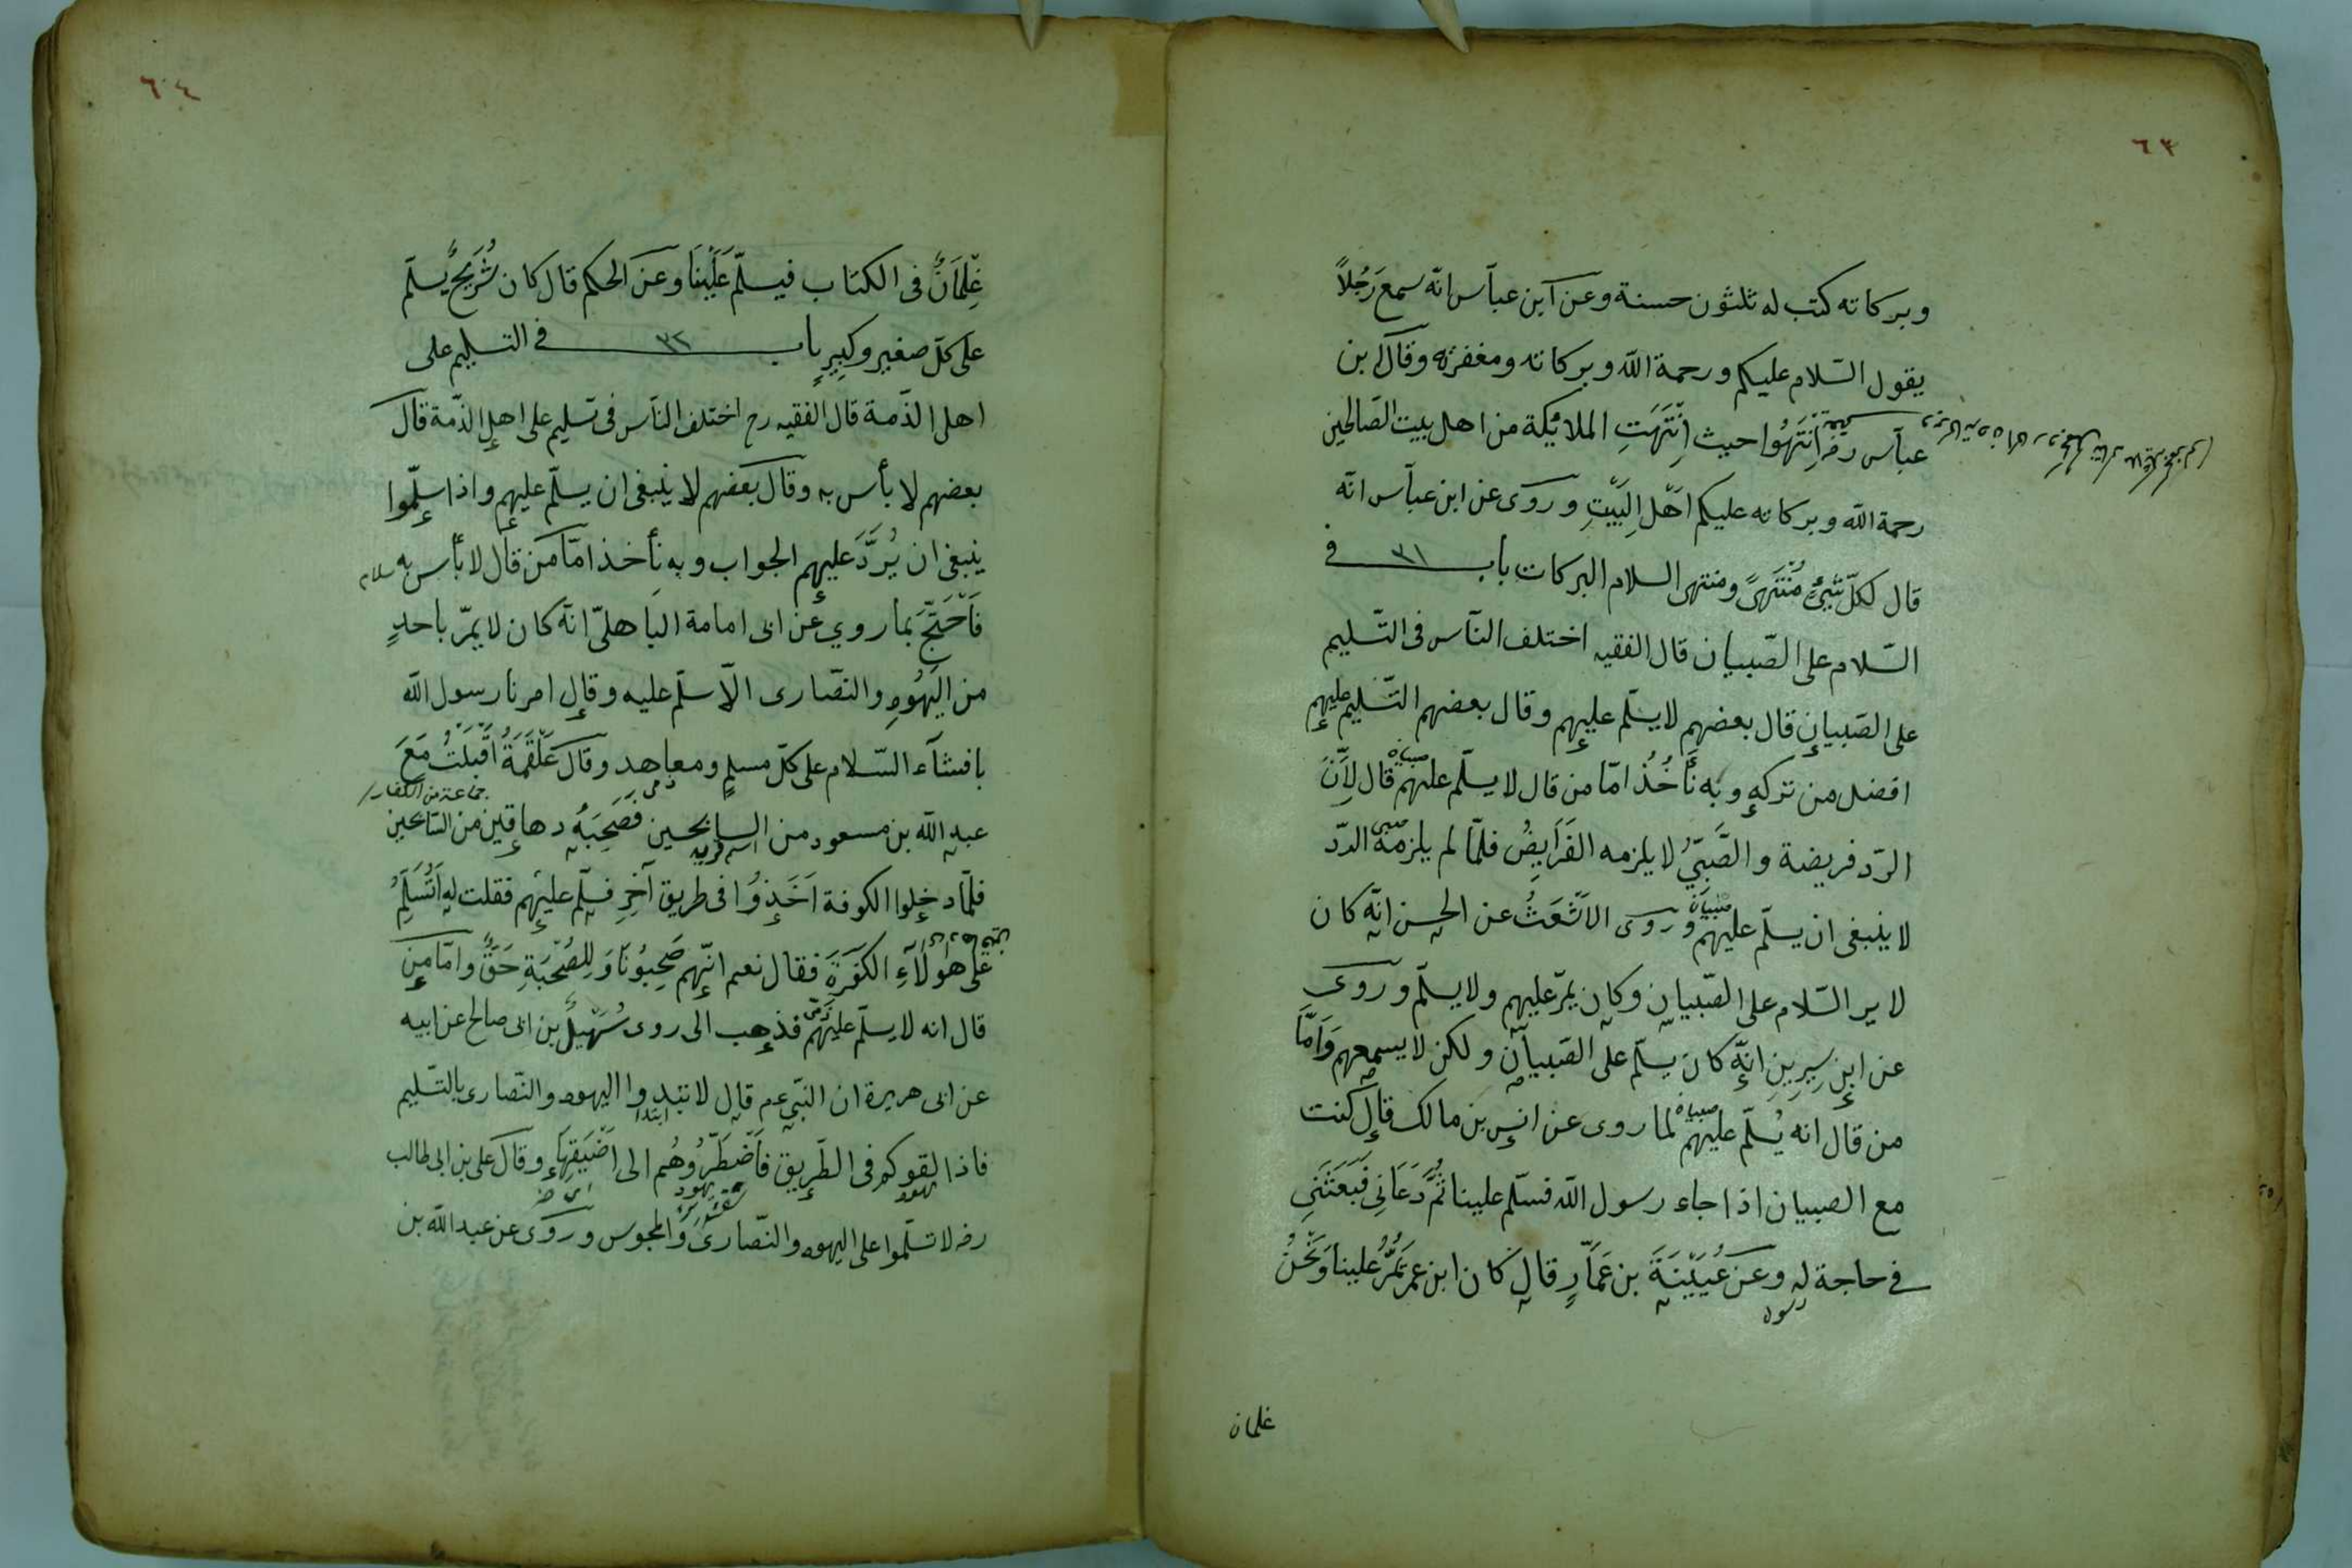 ٦٣
وبركاته كتب له ثلثون حسنة وعن ابن عباس انّه سمع رَجُلاً
يقول السّلام عليكم ورحمة اللّه وبركاته ومغفرته وقال ابن
عباس رضه اِنْتَهُوا حيث اِنْتَهَتِ الملائِكة من اهل بيت الصّالحين
رحمة اللّه وبركاته عليكم اَهْل البَيْتِ وروى عن ابن عباس انّه
قال لكلّ شَيْءٍ مُنْتَهىً ومنتهى السلام البركات باب ٣١ فى
السّلام على الصّبيان قال الفقيه اختلف النّاس فى التّسليم
على الصّبيان قال بعضهم لا يسلّم عليهم وقال بعضهم التّسليم عليهم
افضل من تركه وبه نَأْخُذُ امّا من قال لا يسلّم عليهم قال لِاَنَّ
صبيان
الرّد فريضة والصَّبِيُّ لا يلزمه الفَرَايِضُ فلمّا لم يلزمه الرّد
صبى
لا ينبغى ان يسلّم عليهم وروى الاَشْعَثُ عن الحسن انّه كان
صبيان
لا ير السّلام على الصّبيان وكان يمرّ عليهم ولا يسلّم وروى
عن ابنِ سِيرِينِ انّه كان يسلّم على الصّبيان ولكن لا يسمعهم وَاَمَّا
من قال انه يُسلّم عليهم لما روى عن انس بن مالك قال كنت
صبيان
مع الصبيان اذا جاء رسول اللّه فسلّم علينا ثُمَّ دَعَانِى فَبَعَثَنِى
فى حاجة له وعن عُيَيْنَةَ بن عَمَّارٍ قال كان ابن عمر يَمُرُّ علينا وَنَحْنُ
رسول
غلمان
٦٤
غِلْمَانٌ فى الكتاب فيسلّم عَلَيْنَا وعن الحكم قال كان شُرَيْحٌ يسلّم
على كلّ صغير وكبيرٍ باب ٣٢ فى التسليم على
اهل الذّمة قال الفقيه رح اختلف النّاس فى تسليم على اهل الذّمة قال
بعضهم لا بأس به وقال بعضهم لا ينبغى ان يسلّم عليهم واذا سلّموا
ينبغى ان يُرَدَّ عليهم الجواب وبه نأخذ امّا من قال لا بأس به
سلام
فَاَحْتَجَّ بما روي عن ابى امامة الباهلىّ انّه كان لا يمرّ باحدٍ
من اليَهُودِ والنصّارى الّا سلّم عليه وقال امرنا رسول اللّه
بافشآء السّلام على كلّ مسلمٍ ومعاهد وقال عَلْقَمَةُ اَقْبَلْتُ مَعَ
ذمى جماعة من الكفار
عبد اللّه بن مسعود من السالحين فَصَحِبَهُ دهاقين من السّالحين
اسم قرية
فلمّا دخلوا الكوفة اَخَذُوا فى طريق آخر فسلّم عليهم فقلت له اَتُسَلِّمُ
على هؤلآءِ الكَفَرَةِ فقال نعم انّهم صَحِبُونَا وَلِلصُّحْبَةِ حَقٌّ وامّا من
قال انه لا يسلّم عليهم فذهب الى روى سُهَيْلُ بن ابى صالح عن ابيه
ذمّى
عن ابى هريرة ان النّبى عم قال لا تبتدوا اليهود والنّصارى بالتّسليم
ابتدا
فاذا لقوكم فى الطّريق فَاَضْطَرُّوهُم الى اَضْيَقِهَا وقال على بن ابى طالب
يهود يهود
رضه لا تسلّموا على اليهود والنّصارى والمجوس وروى عن عبد اللّه بن